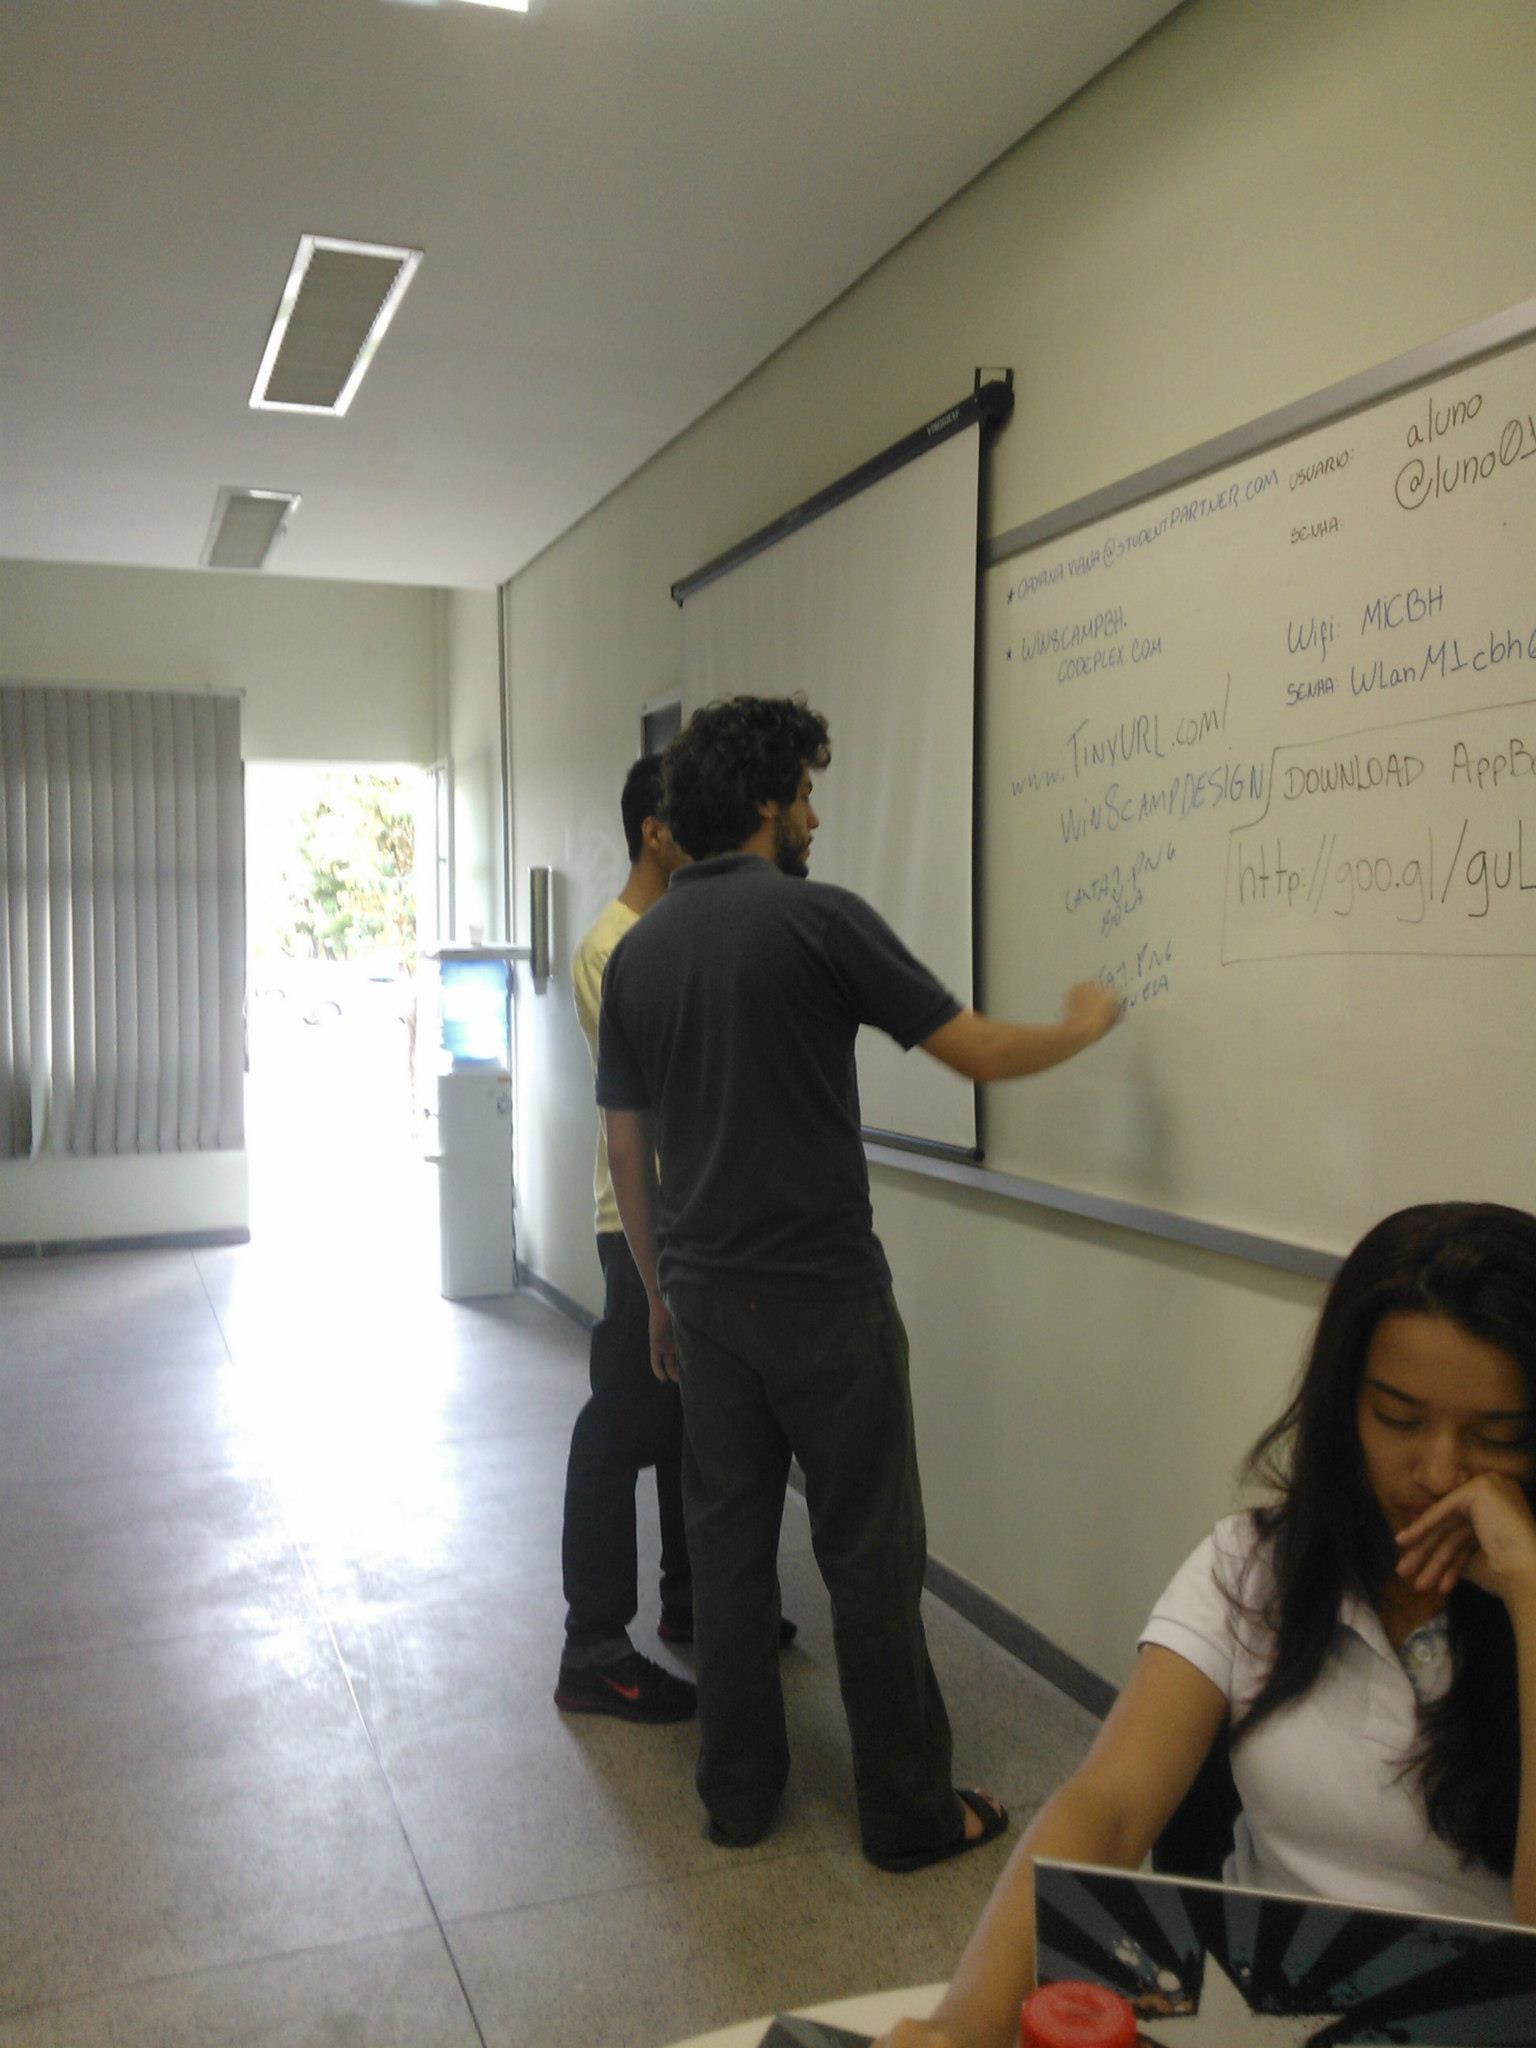 VISOGRAF
* DAYANA.VIANA@STUDENTPARTNER.COM
* WIN8CAMPBH.
CODEPLEX.COM
www.TINYURL.com/
WIN8CAMPDESIGN
.PNG
BOLA
.PNG
USUARIO: aluno
SENHA: @luno01
Wifi: MICBH
SENHA: WLanM1cbh
DOWNLOAD AppB
http://goo.gl/guL